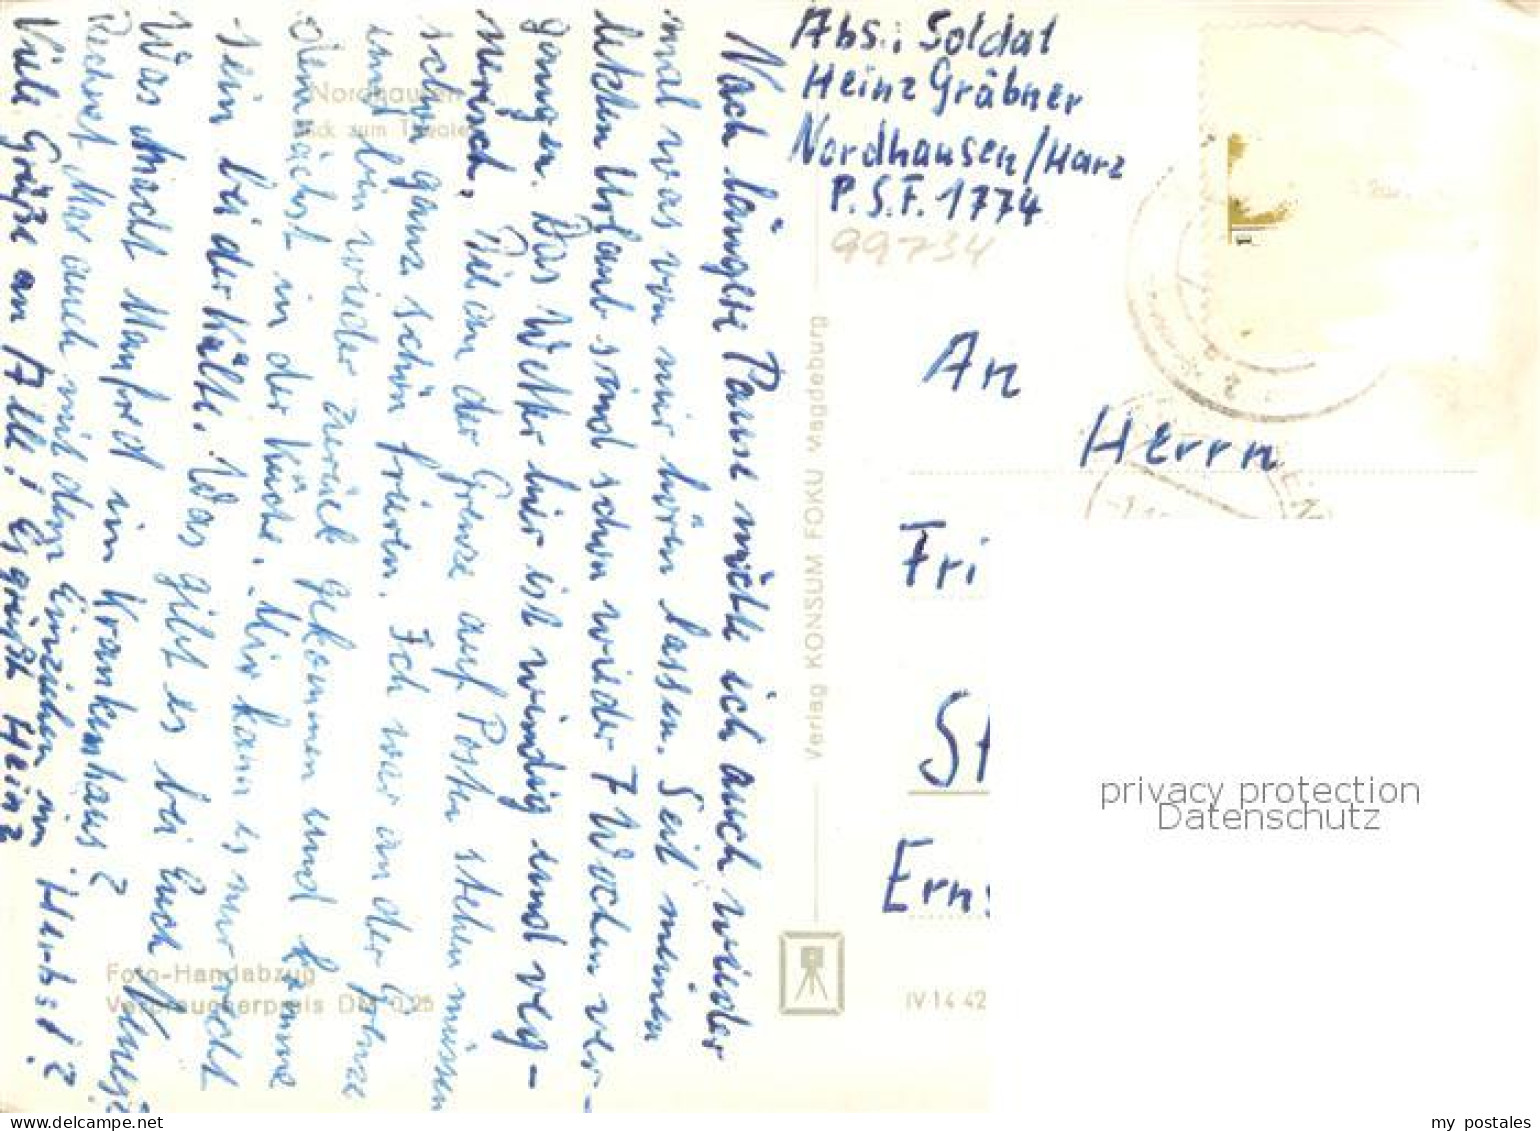 Abs.: Soldat
Heinz Gräbner
Nordhausen/Harz
P.S.F. 1774
99734
An
Herrn
Fri
St
Ern
Nach längere Pause möchte ich auch wieder
mal was von mir hören lassen. Seit meinem
letzten Urlaub sind schon wieder 7 Wochen ver-
gangen. Das Wetter hier ist windig und reg-
nerisch. Die an der Grenze auf Posten stehen müssen
schon ganz schön frieren. Ich war an der Grenze
und bin wieder zurück gekommen und komme
demnächst in der Küche. Mir kann es nur recht
sein bei der Kälte. Was gibt es bei Euch Neues?
Was macht Manfred im Krankenhaus?
Rechnet Max auch mit dem Einziehen im Herbst?
Viele Grüße an Alle! Es grüßt Heinz
Nordhausen
Blick zum Theater
Foto-Handabzug
Verbraucherpreis DM 0,25
Verlag KONSUM FOKU Magdeburg
IV 14 42
privacy protection
Datenschutz
my postales